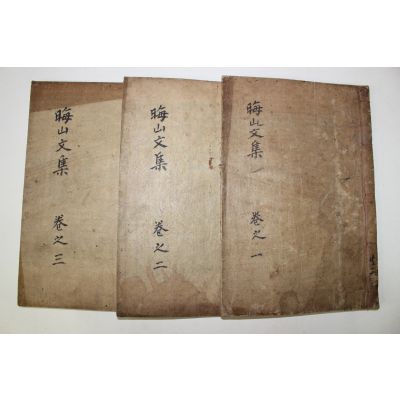 晦山文集
卷之一
晦山文集
卷之二
晦山文集
卷之三